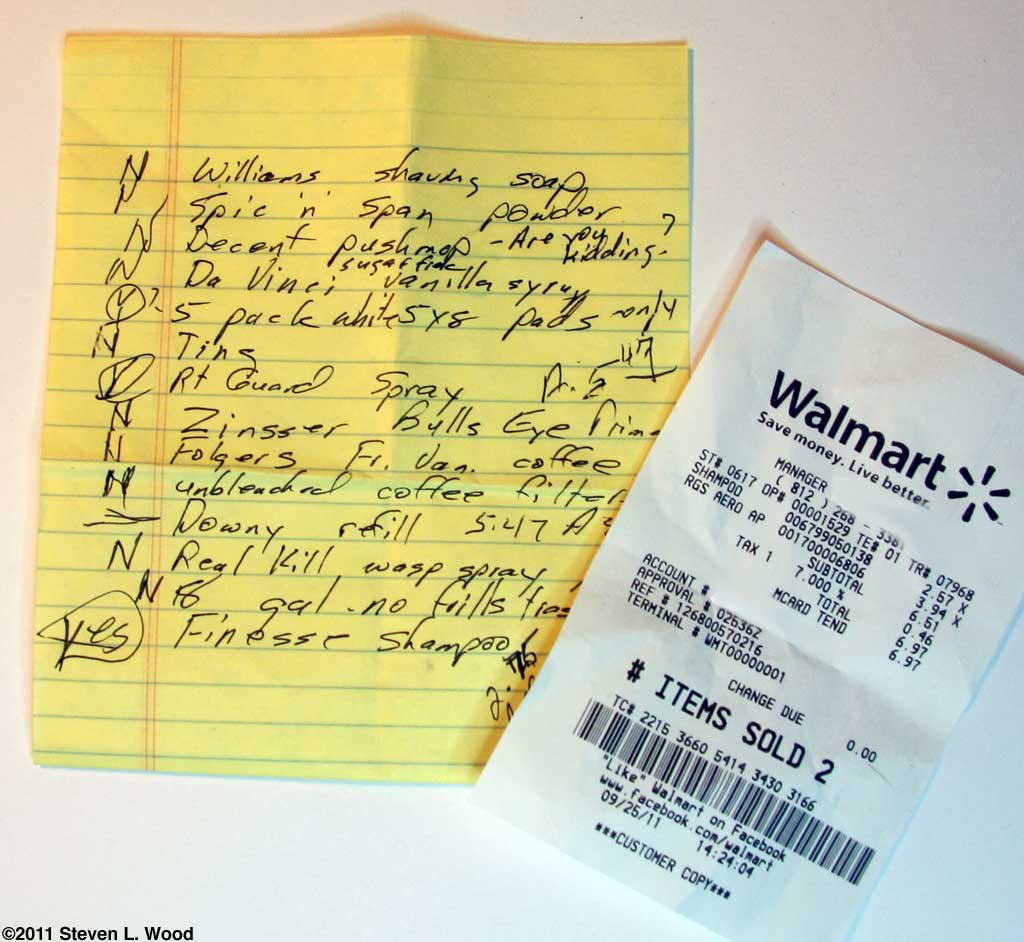 N Williams shaving soap
N Spic 'n' Span powder
N Decent pushmop - Are you kidding?
sugar free
N Da Vinci vanilla syrup
Y? 5 pack white 5x8 pads only
N Ting
Y Rt Guard Spray
N Zinsser Bulls Eye Prime
N Folgers Fr. Van. coffee
N unbleached coffee filter
Downy refill 5.47
N Real Kill wasp spray
N gal. no frills
yes Finesse shampoo
Walmart
Save money. Live better.
MANAGER
( 812 ) 268 - 3381
ST# 0617 OP# 00001529 TE# 01 TR# 07968
SHAMPOO 006799050138 2.57 X
RGS AERO AP 001700006806 3.94 X
SUBTOTAL 6.51
TAX 1 7.000 % 0.46
TOTAL 6.97
MCARD TEND 6.97
ACCOUNT #
APPROVAL # 02536Z
REF # 126800570216
TERMINAL # WMT00000001
CHANGE DUE 0.00
# ITEMS SOLD 2
TC# 2215 3660 5414 3430 3166
"Like" Walmart on Facebook
www.facebook.com/walmart
09/25/11 14:24:04
***CUSTOMER COPY***
©2011 Steven L. Wood